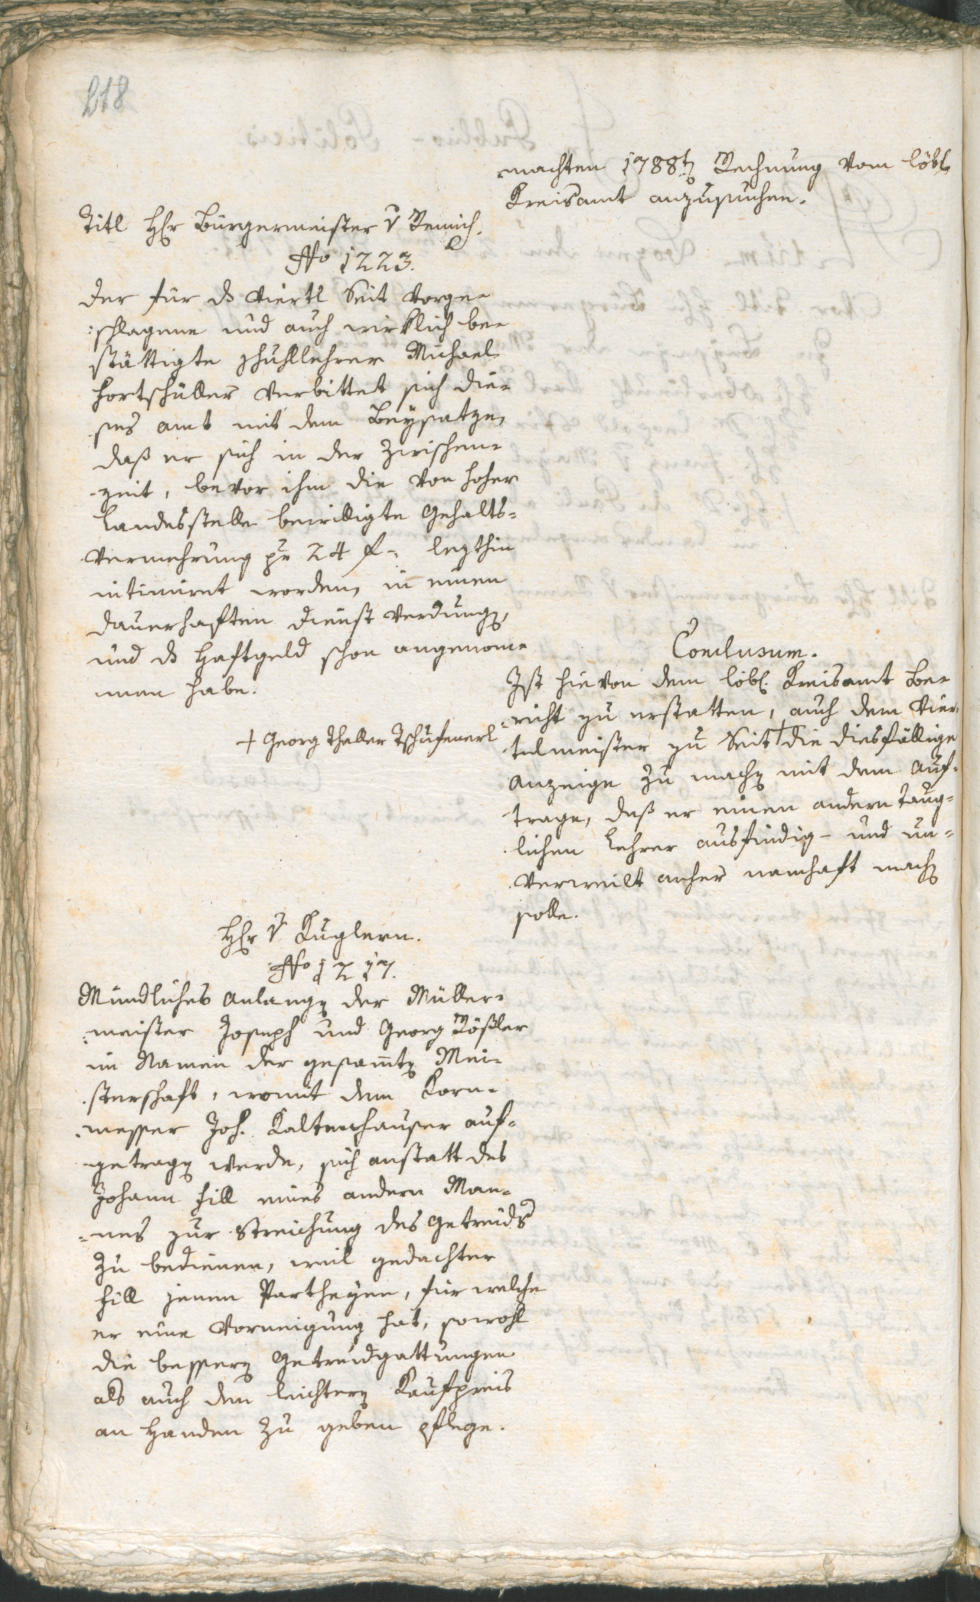 218
machten 1788t Rechnung vom löbl
Kreisamt anzusuchen.
Titl Hr Bürgermeister v Remich.
No 1223.
Der für ds Viertl Seit vorge-
schlagene und auch wirklich be-
stättigte Schullehrer Michael
Hortschuller verbittet sich die-
ses amt mit dem Beysatze,
daß er sich in der Zwischen-
zeit, bevor ihm die von hoher
Landesstelle bewilligte Gehalts-
vermehrung pr 24 f. lezthin
intimirt worden, in einen
dauerhaften Dienst verdung,
und ds Haftgeld schon angenom-
men habe.
+ Georg Thaller Tschufenerl
Conclusum.
Ist hievon dem löbl. Kreisamt Be-
richt zu erstatten, auch dem Vier-
telmeister zu Seit + die diesfällige
Anzeige zu mach mit dem Auf-
trage, daß er einen andern taug-
lichen Lehrer ausfindig- und un-
verweilt anher namhaft mach
solle.
Hr v Kuglern.
No 1217.
Mündliches Anlang der Müller-
meister Joseph und Georg Rößler
im Namen der gesamt Mei-
sterschaft, womit dem Korn-
messer Joh. Kaltenhauser auf-
getrag werde, sich anstatt des
Johann Fill eines andern Man-
nes zur Streichung des Getreids
zu bedienen, weil gedachter
Fill jenen Partheyen, für welche
er eine Vorneigung hat, sowohl
die bessern Getreidgattungen
als auch den leichtern Kaufpreis
an Handen zu geben pflege.